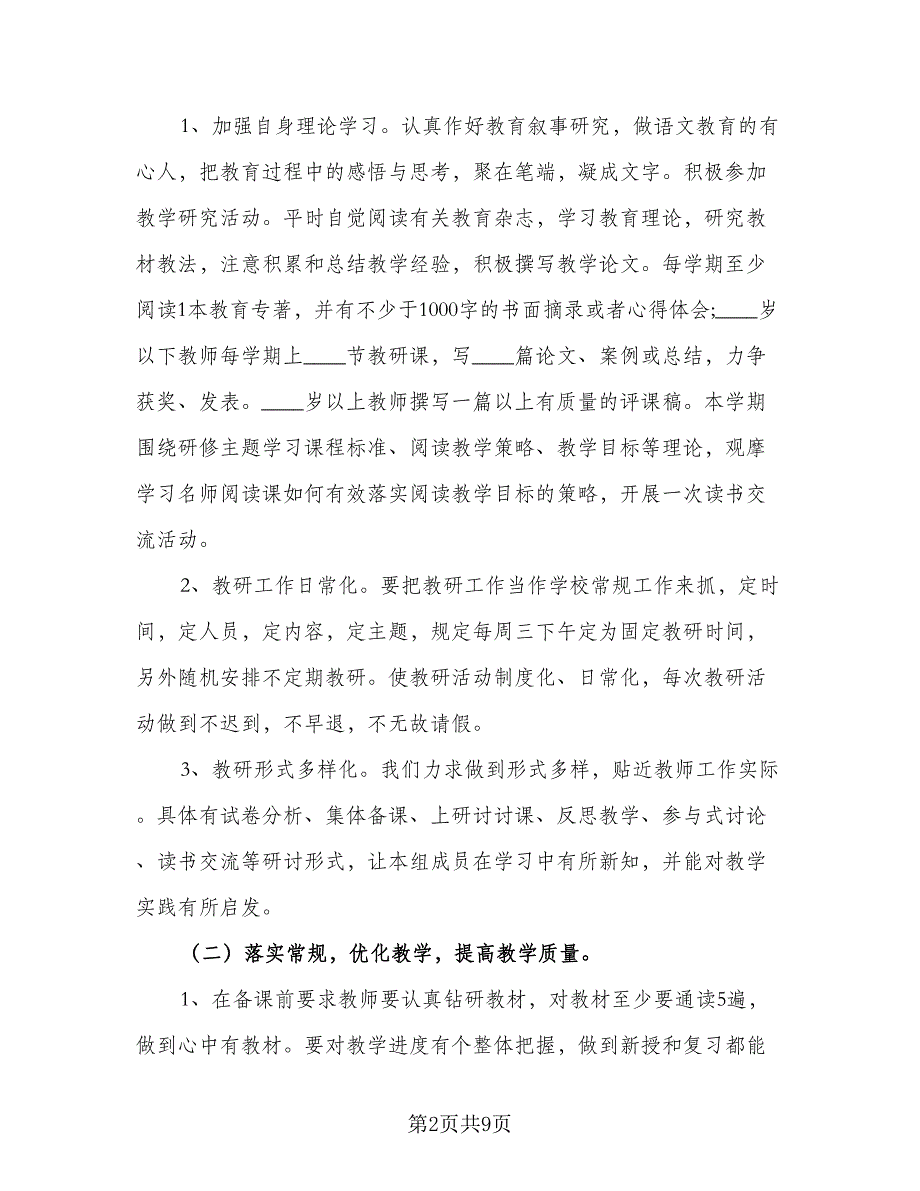 1、加强自身理论学习。认真作好教育叙事研究，做语文教育的有
心人，把教育过程中的感悟与思考，聚在笔端，凝成文字。积极参加
教学研究活动。平时自觉阅读有关教育杂志，学习教育理论，研究教
材教法，注意积累和总结教学经验，积极撰写教学论文。每学期至少
阅读1本教育专著，并有不少于1000字的书面摘录或者心得体会;____岁
以下教师每学期上____节教研课，写____篇论文、案例或总结，力争
获奖、发表。____岁以上教师撰写一篇以上有质量的评课稿。本学期
围绕研修主题学习课程标准、阅读教学策略、教学目标等理论，观摩
学习名师阅读课如何有效落实阅读教学目标的策略，开展一次读书交
流活动。
2、教研工作日常化。要把教研工作当作学校常规工作来抓，定时
间，定人员，定内容，定主题，规定每周三下午定为固定教研时间，
另外随机安排不定期教研。使教研活动制度化、日常化，每次教研活
动做到不迟到，不早退，不无故请假。
3、教研形式多样化。我们力求做到形式多样，贴近教师工作实际
。具体有试卷分析、集体备课、上研讨讨课、反思教学、参与式讨论
、读书交流等研讨形式，让本组成员在学习中有所新知，并能对教学
实践有所启发。
（二）落实常规，优化教学，提高教学质量。
1、在备课前要求教师要认真钻研教材，对教材至少要通读5遍，
做到心中有教材。要对教学进度有个整体把握，做到新授和复习都能
第2页共9页